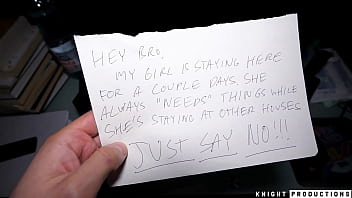 HEY BRO,
MY GIRL IS STAYING HERE
FOR A COUPLE DAYS. SHE
ALWAYS "NEEDS" THINGS WHILE
SHE'S STAYING AT OTHER HOUSES
JUST SAY NO!!!
KNIGHT PRODUCTIONS